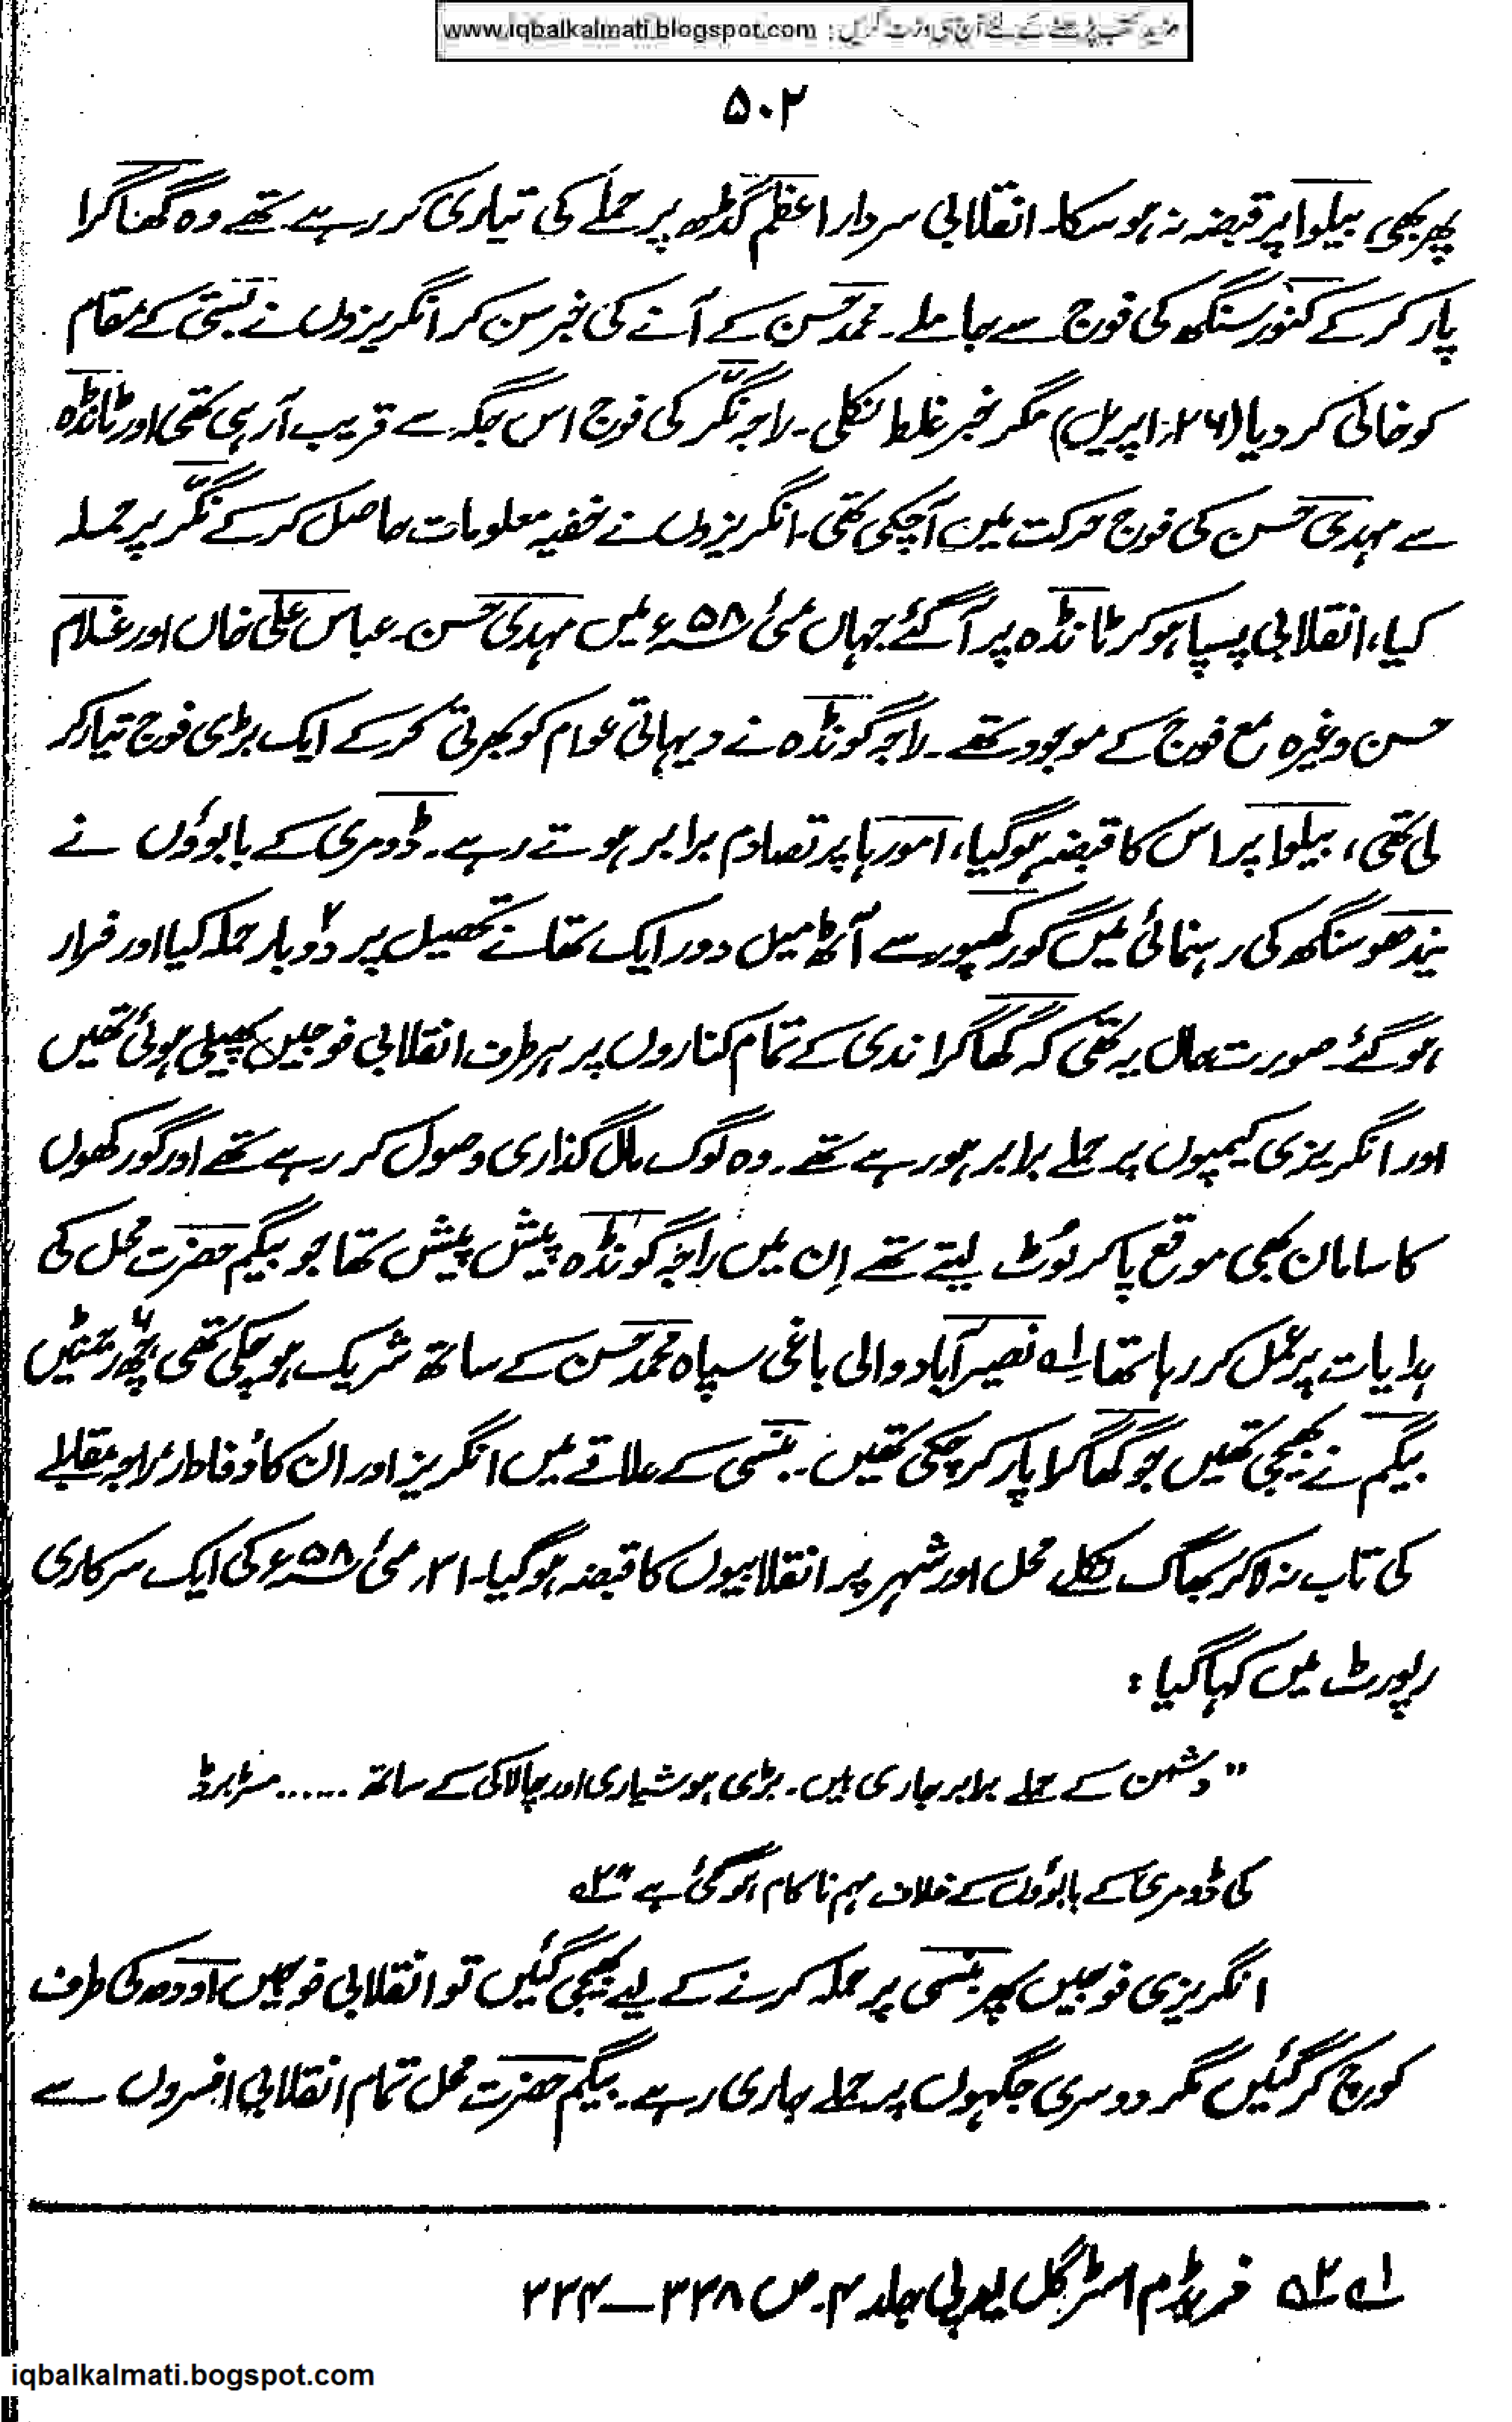 مزید کتب پڑھنے کے لئے آج ہی وزٹ کریں : www.iqbalkalmati.blogspot.com
۵۰۲
پھر بھی بیلوا پر قبضہ نہ ہو سکا۔ انقلابی سردار اعظم گڈھ پر حملے کی تیاری کر رہے تھے وہ گھاگرا
پار کرکے کنور سنگھ کی فوج سے جا ملے۔ محمد حسن کے آنے کی خبر سن کر انگریزوں نے بستی کے مقام
کو خالی کر دیا (۲۶؍اپریل) مگر خبر غلط نکلی۔ راجہ نگر کی فوج اس جگہ سے قریب آ رہی تھی اور ٹانڈہ
سے مہدی حسن کی فوج حرکت میں آچکی تھی۔ انگریزوں نے خفیہ معلومات حاصل کرکے نگر پر حملہ
کیا، انقلابی پسپا ہو کر ٹانڈہ پر آگئے جہاں مئی ۵۸ء میں مہدی حسن۔ عباس علی خاں اور غلام
حسن وغیرہ مع فوج کے موجود تھے۔ راجہ گونڈہ نے دیہاتی عوام کو بھرتی کرکے ایک بڑی فوج تیار کر
لی تھی، بیلوا پر اس کا قبضہ ہو گیا، امورہا پر تصادم برابر ہوتے رہے۔ ڈومری کے بابوؤں نے
بندھو سنگھ کی رہنمائی میں گورکھپور سے آٹھ میل دور ایک تھانے تحصیل پر دو۲ بار حملہ کیا اور فرار
ہو گئے۔ صورت حال یہ تھی کہ گھاگرا ندی کے تمام کناروں پر ہر طرف انقلابی فوجیں پھیلی ہوئی تھیں
اور انگریزی کیمپوں پر حملے برابر ہو رہے تھے۔ وہ لوگ مال گذاری وصول کر رہے تھے اور گورکھوں
کا سامان بھی موقع پا کر لوٹ لیتے تھے اِن میں راجہ گونڈہ پیش پیش تھا جو بیگم حضرت محل کی
ہدایات پر عمل کر رہا تھا۔۱؎ نصیر آباد والی باغی سپاہ محمد حسن کے ساتھ شریک ہو چکی تھی چھ۶ رجمنٹیں
بیگم نے بھیجی تھیں جو گھاگرا پار کر چکی تھیں۔ بنسی کے علاقے میں انگریز اور ان کا وفادار راجہ مقابلے
کی تاب نہ لاکر بھاگ نکلے محل اور شہر پر انقلابیوں کا قبضہ ہو گیا۔ ۳۱؍مئی ۵۸ء کی ایک سرکاری
رپورٹ میں کہا گیا :
"دشمن کے حملے برابر جاری ہیں۔ بڑی ہوشیاری اور چالاکی کے ساتھ ...... مسٹر برڈ
کی ڈومری کے بابوؤں کے خلاف مہم ناکام ہو گئی ہے"۲؎
انگریزی فوجیں پھر بنسی پر حملہ کرنے کے لیے بھیجی گئیں تو انقلابی فوجیں اودھ کی طرف
کوچ کر گئیں مگر دوسری جگہوں پر حملے جاری رہے۔ بیگم حضرت محل تمام انقلابی افسروں سے
۱؎ ۲؎ فریڈم اسٹرگل یو پی جلد ۴۔ ص ۳۳۸ — ۳۳۴
iqbalkalmati.bogspot.com